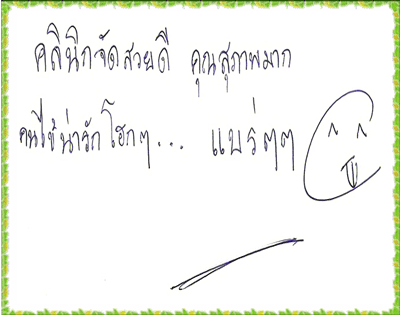 คลินิกจัดสวยดี คุณสุภาพมาก
คนไข้น่ารักโฮกๆ... แบร่ๆๆ